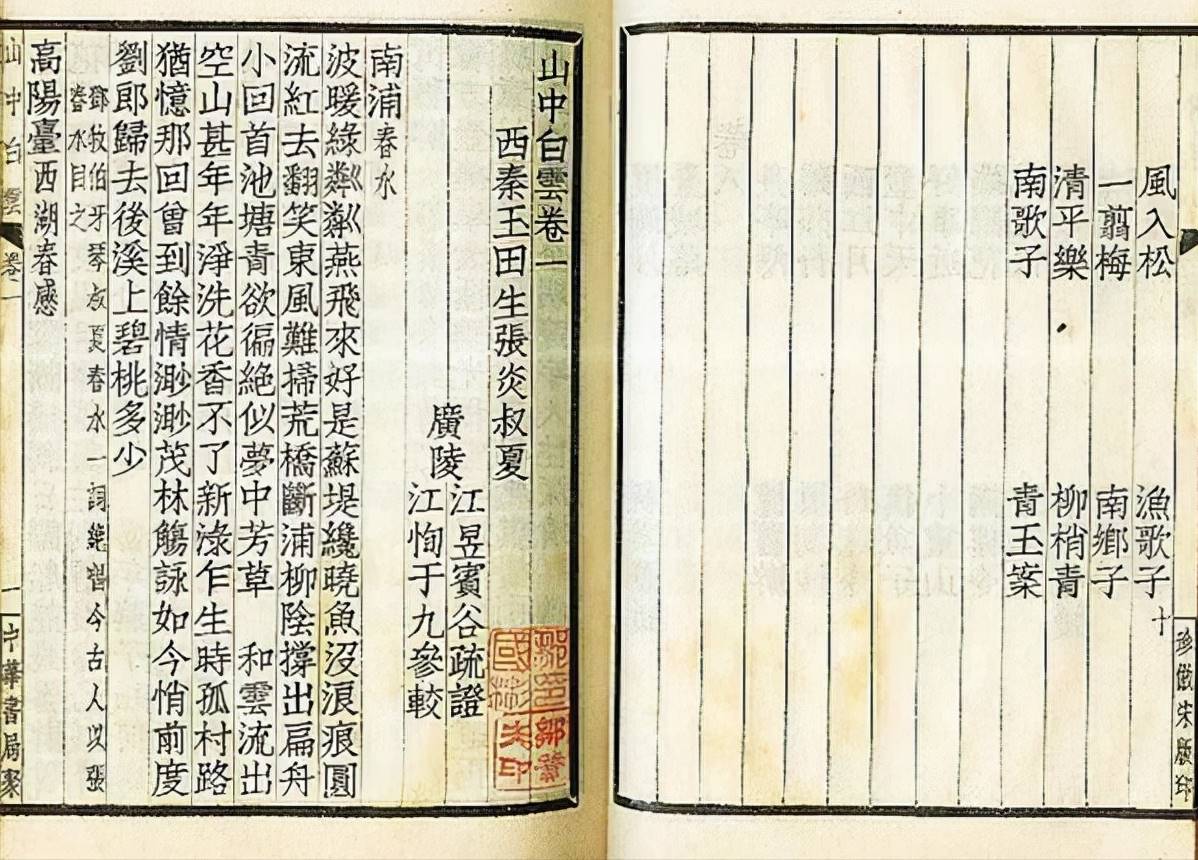 風入松 漁歌子
一翦梅 南鄉子
清平樂 柳梢青
南歌子 青玉案
十
珍倣宋版印
山中白雲卷一
西秦玉田生張炎叔夏
廣陵
江昱賓谷疏證
江恂于九參較
南浦春水
波暖綠粼粼燕飛來好是蘇堤纔曉魚沒浪痕圓
流紅去翻笑東風難掃荒橋斷浦柳陰撐出扁舟
小回首池塘青欲徧絕似夢中芳草 和雲流出
空山甚年年淨洗花香不了新淥乍生時孤村路
猶憶那回曾到餘情渺渺茂林觴詠如今悄前度
劉郎歸去後溪上碧桃多少
鄧牧伯牙琴叔夏春水一詞絕唱今古人以張
春水目之
高陽臺西湖春感
山中白雲 卷一 一 中華書局聚